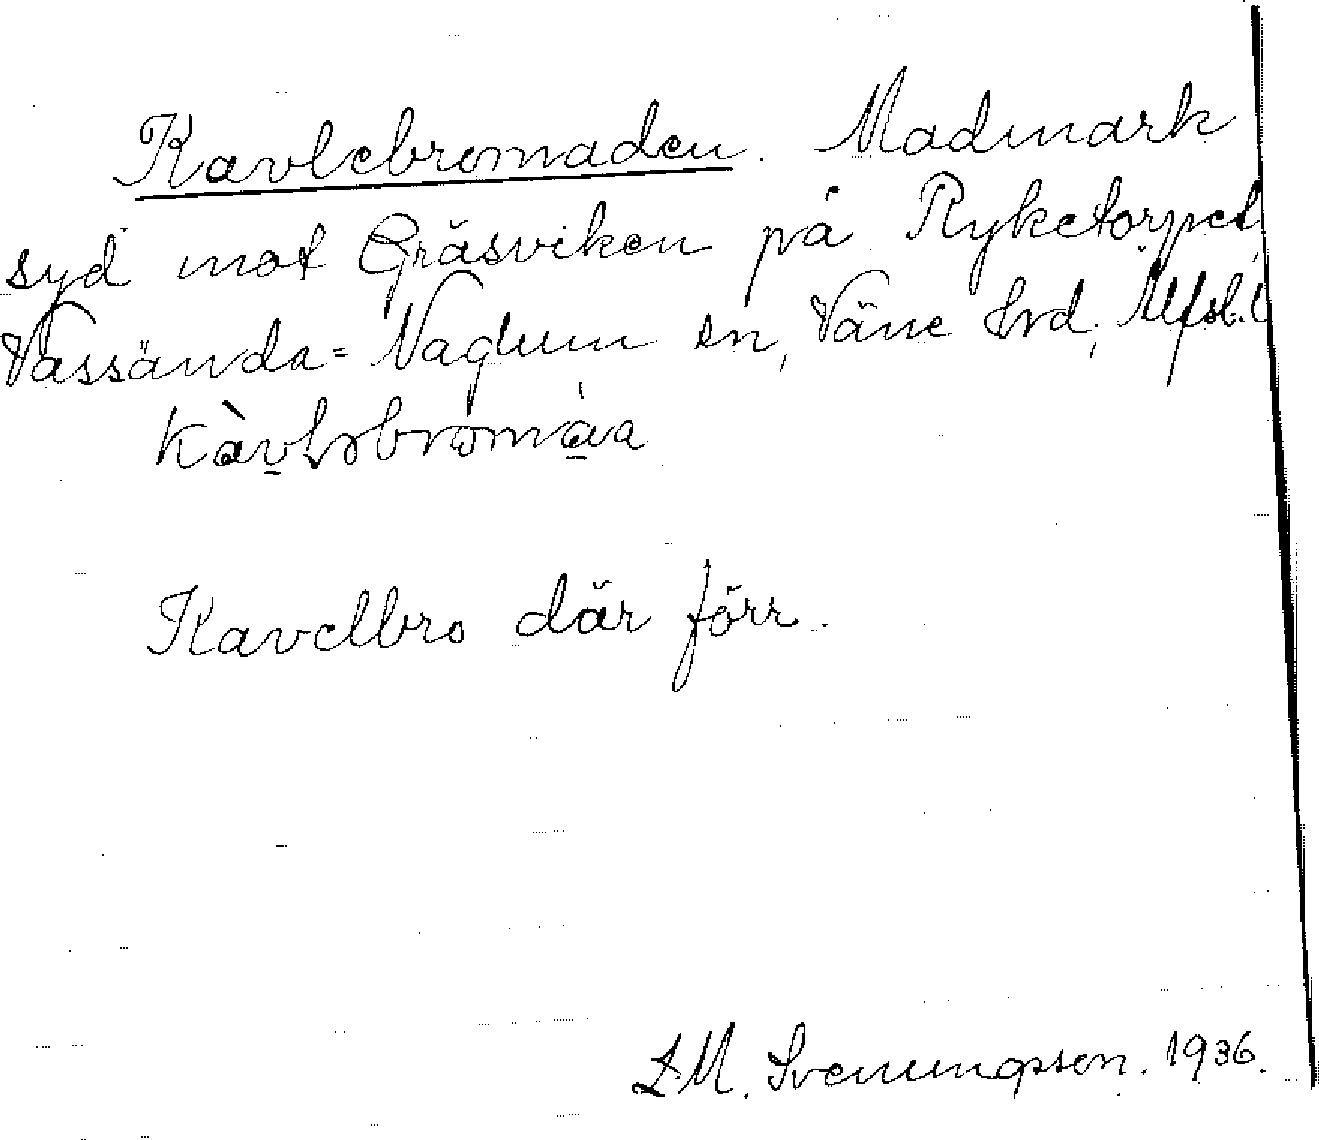 Kavlebromaden. Madmark
syd mot Gräsviken på Ryketorpet,
Vassända=Naglum sn, Väne hrd, Älfsb. l
Kavelbro där förr.
1936.